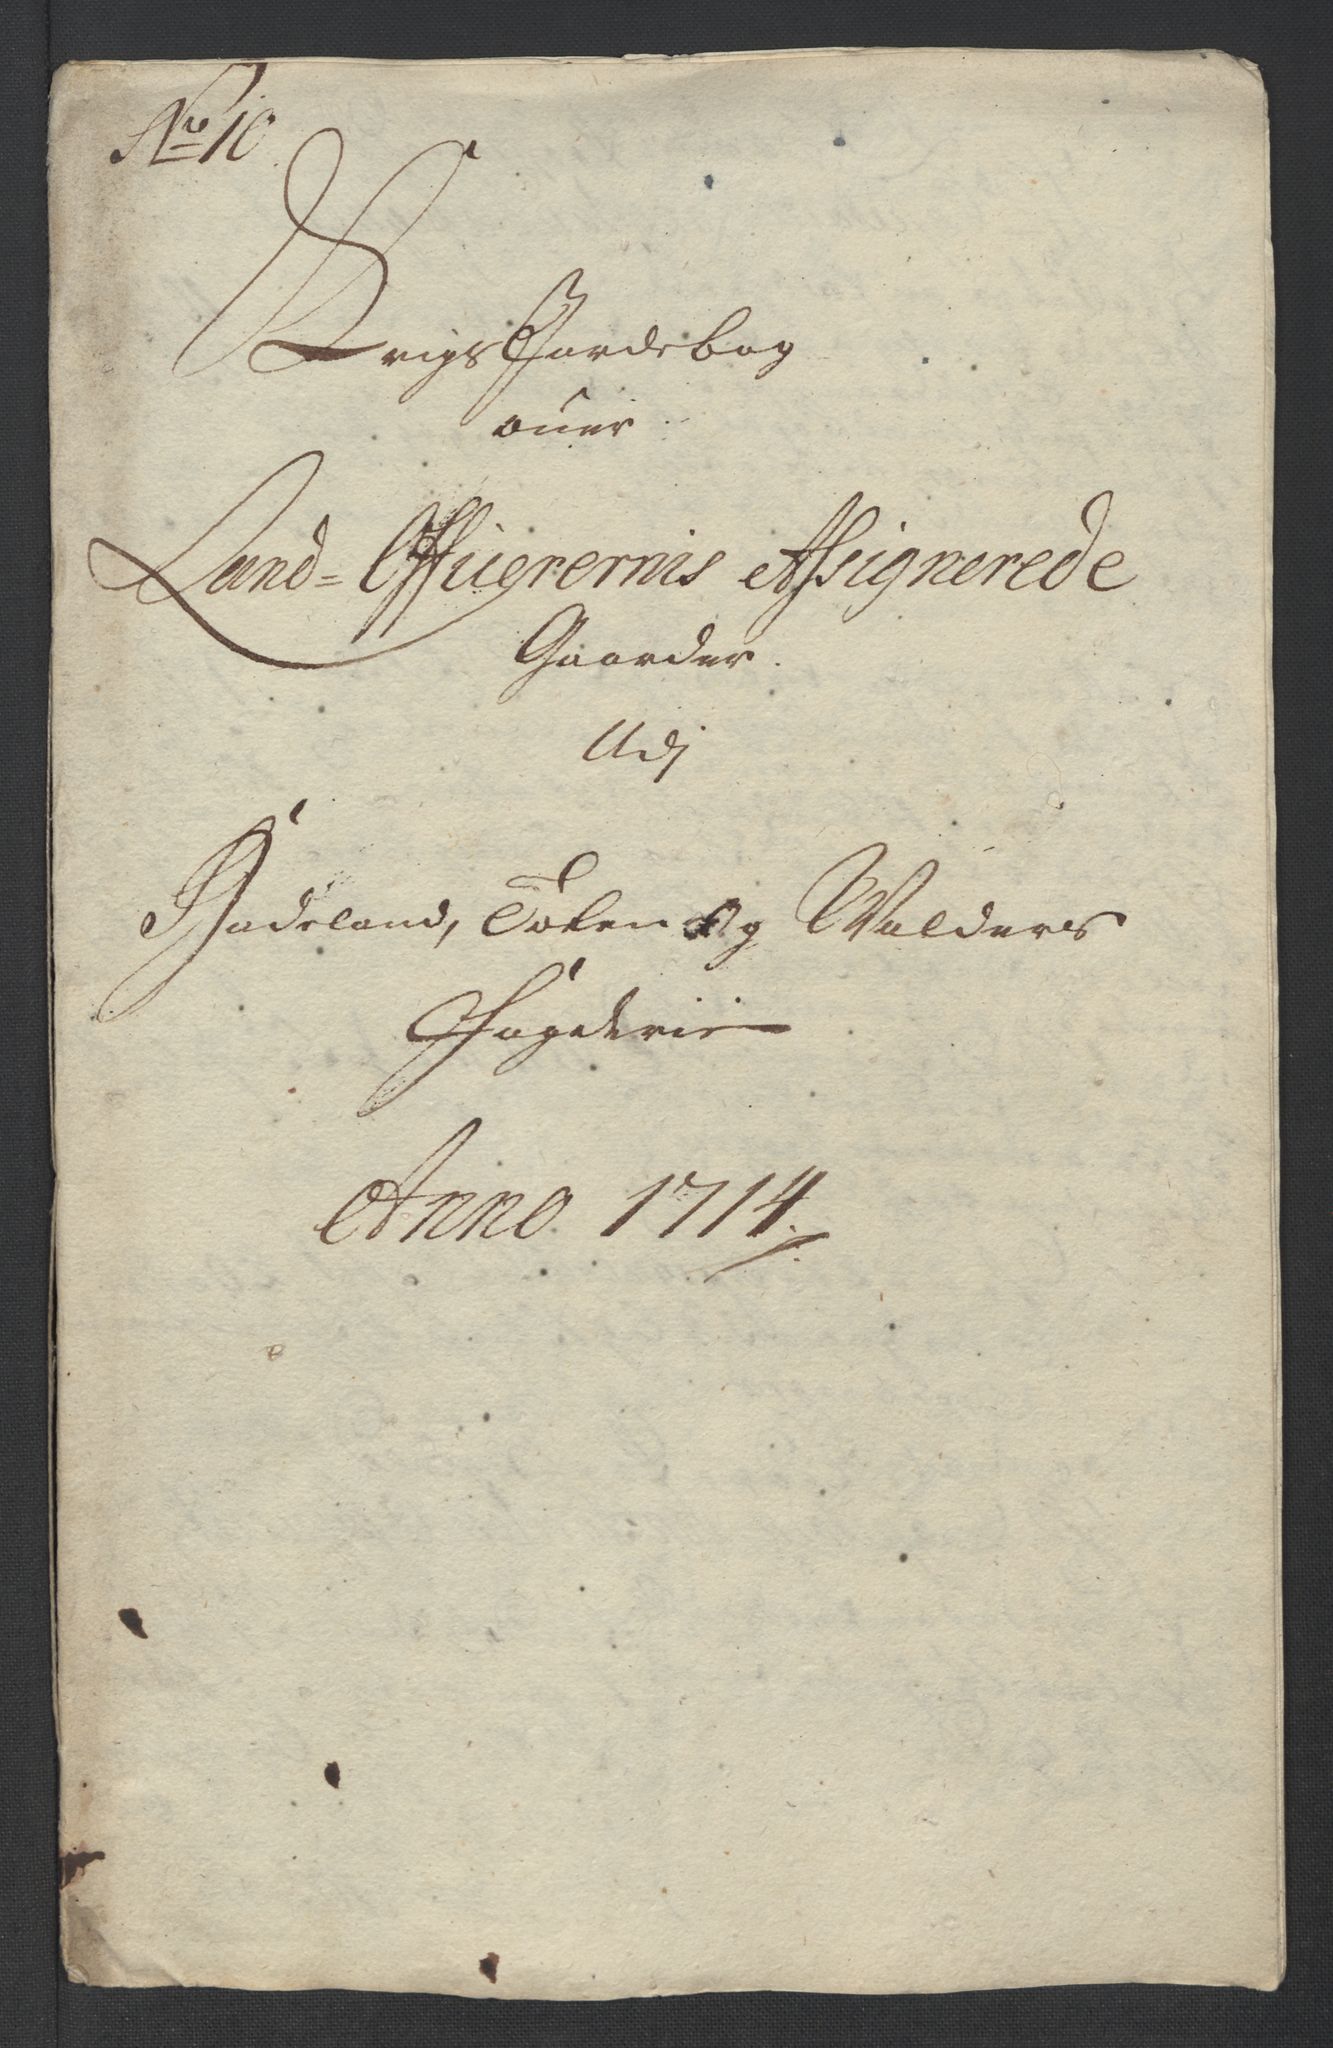 No 10
Krigs Jordebog
ouer
Land-Officerernis Assignerede
Gaarder.
Udj
Hadeland, Toten Og Walders
Fogderie
Anno 1714.